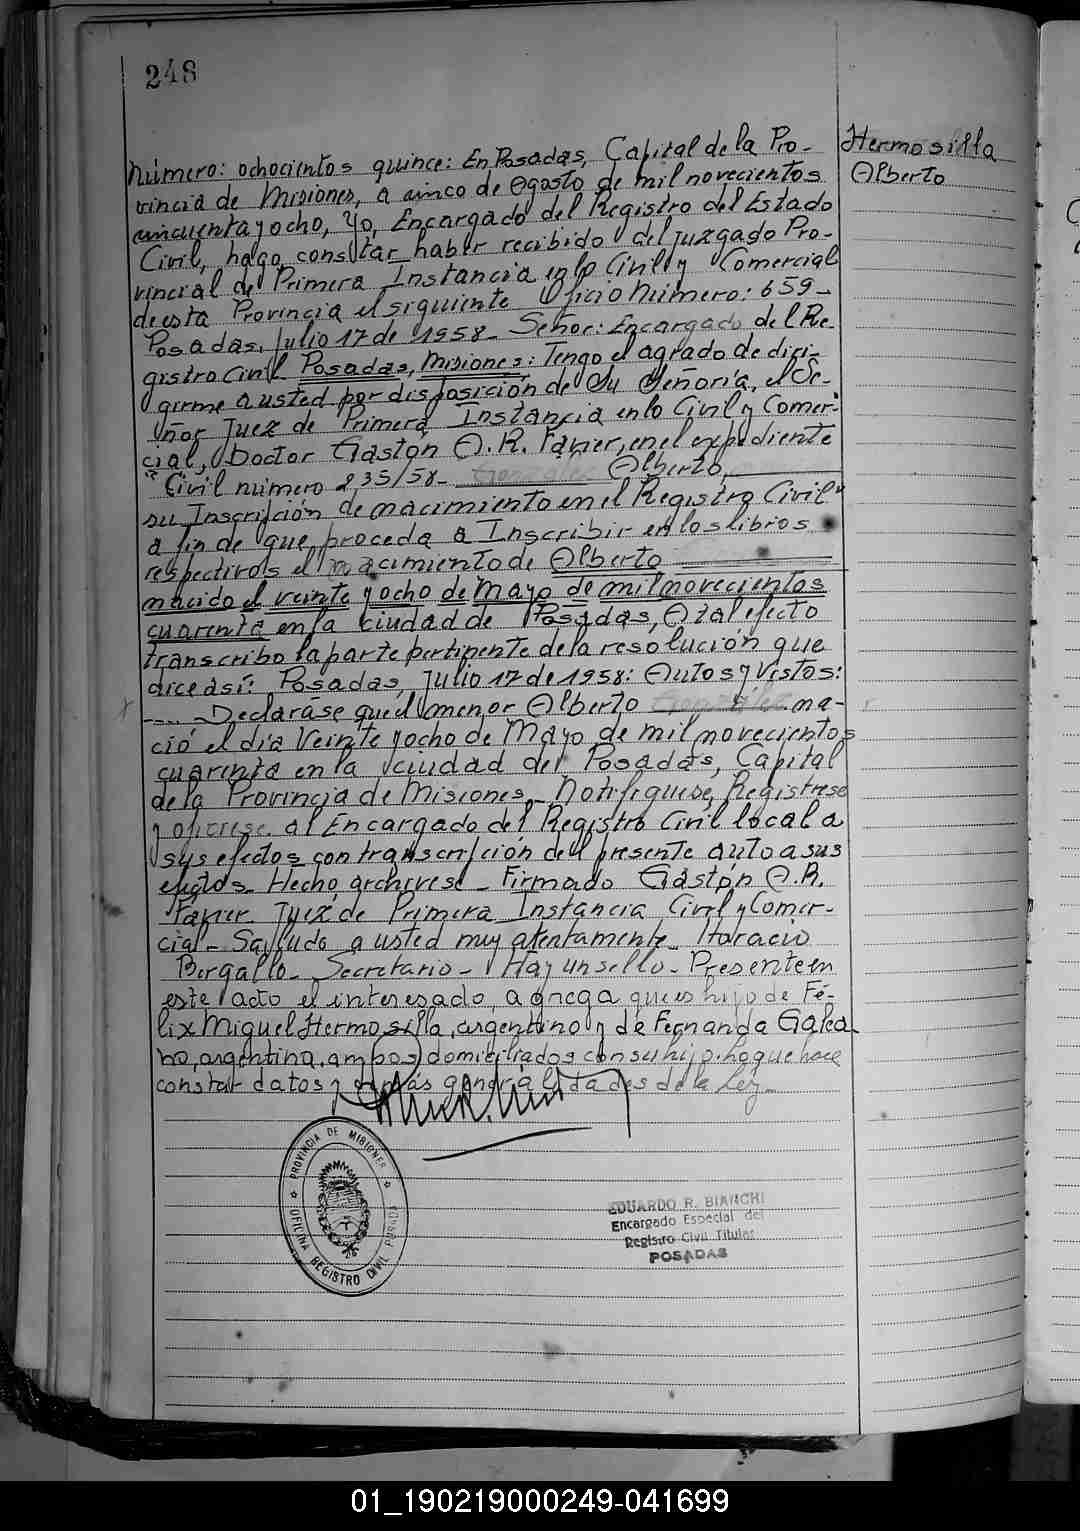 248
Hermosilla
Alberto
Número: ochocientos quince: En Posadas, Capital de la Pro-
vincia de Misiones, a cinco de Agosto de mil novecientos
cincuenta y ocho, Yo, Encargado del Registro del Estado
Civil, hago constar haber recibido del Juzgado Pro-
vincial de Primera Instancia en lo Civil y Comercial
de esta Provincia el siguiente Oficio Número: 659-
Posadas, Julio 17 de 1958- Señor: Encargado del Re-
gistro Civil Posadas, Misiones: Tengo el agrado de diri-
girme a usted por disposición de Su Señoría, el Se-
ñor Juez de Primera Instancia en lo Civil y Comer-
cial, Doctor Gastón A. R. Favier, en el expediente
" Civil número 235/58- González Alberto
su Inscripción de nacimiento en el Registro Civil"
a fin de que proceda a Inscribir en los libros
respectivos el nacimiento de Alberto
nacido el veinte y ocho de Mayo de mil novecientos
cuarenta en la ciudad de Posadas, A tal efecto
transcribo la parte pertinente de la resolución que
dice así: Posadas, Julio 17 de 1958: Autos y Vistos:
.... Declaráse que el menor Alberto González na-
ció el día Veinte y ocho de Mayo de mil novecientos
cuarenta en la ciudad de Posadas, Capital
de la Provincia de Misiones- Notifiquese, Registrese
y oficiese al Encargado del Registro Civil local a
sus efectos con transcripción del presente auto a sus
efectos- Hecho archivese- Firmado Gastón A. R.
Favier. Juez de Primera Instancia Civil y Comer-
cial- Saludo a usted muy atentamente- Horacio
Bergallo- Secretario- Hay un sello- Presente en
este acto el interesado, agrega que es hijo de Fé-
lix Miguel Hermosilla, argentino y de Fernanda Galea-
no, argentina, ambos domiciliados con su hijo. lo que hace
constar datos y demás generalidades de la Ley-
PROVINCIA DE MISIONES
OFICINA REGISTRO CIVIL POSADAS
EDUARDO R. BIANCHI
Encargado Especial del
Registro Civil Titular
POSADAS
01_190219000249-041699